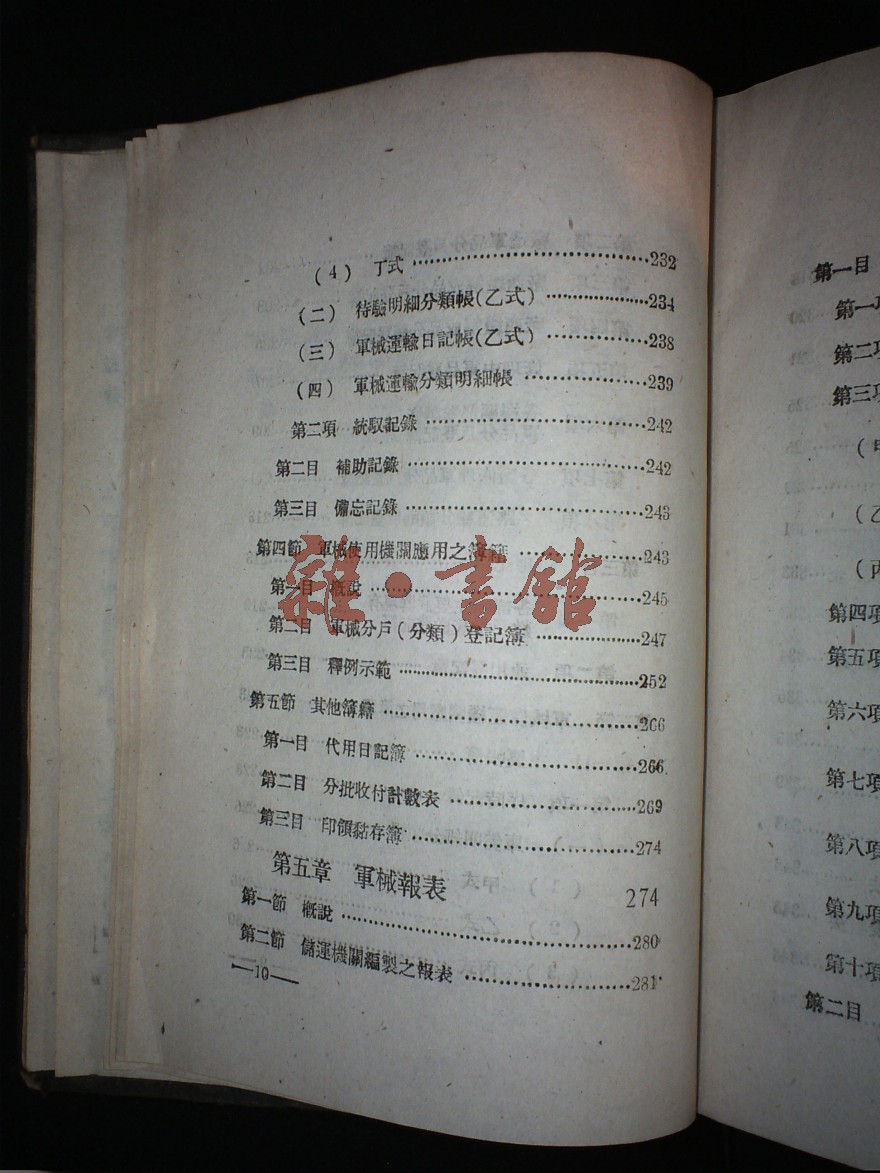 (4) 丁式 232
(二) 待驗明細分類帳(乙式) 234
(三) 軍械運輸日記帳(乙式) 238
(四) 軍械運輸分類明細帳 239
第二項 統馭記錄 242
第二目 補助記錄 242
第三目 備忘記錄 243
第四節 軍械使用機關應用之簿籍 243
第一目 概說 245
第二目 軍械分戶(分類)登記簿 247
第三目 釋例示範 252
第五節 其他簿籍 266
第一目 代用日記簿 266
第二目 分批收付計數表 269
第三目 印領黏存簿 274
第五章 軍械報表 274
第一節 概說 280
第二節 儲運機關編製之報表 281
—10—
雜·書館
第一目
第一項
第二項
第三項
第四項
第五項
第六項
第七項
第八項
第九項
第十項
第二目